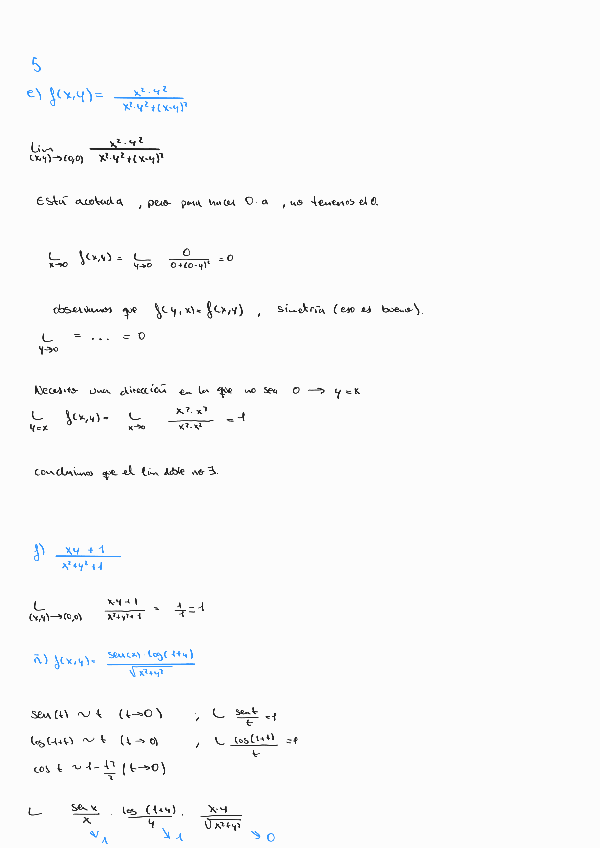 5
e) f(x,y) = x²·y² / x²·y²+(x-y)²
Lim (x,y)→(0,0) x²·y² / x²·y²+(x-y)²
Está acotada, pero para hacer 0·a, no tenemos el 0.
L x→0 f(x,y) = L y→0 0 / 0+(0-y)² = 0
observamos que f(y,x)=f(x,y), simetría (eso es bueno).
L y→0 = ... = 0
Necesito una dirección en la que no sea 0 → y=x
L y=x f(x,y) = L x→0 x²·x² / x²·x² = 1
concluimos que el lim doble no ∃.
f) xy + 1 / x²+y²+1
L (x,y)→(0,0) x·y+1 / x²+y²+1 = 1/1 = 1
ñ) f(x,y) = sen(x)·log(1+y) / √x²+y²
sen(t) ~ t (t→0) ; L sen t / t = 1
log(1+t) ~ t (t→0) , L log(1+t) / t = 1
cos t ~ 1 - t²/2 (t→0)
L sen x / x · log(1+y) / y · x·y / √x²+y²
↘1 ↘1 ↘0